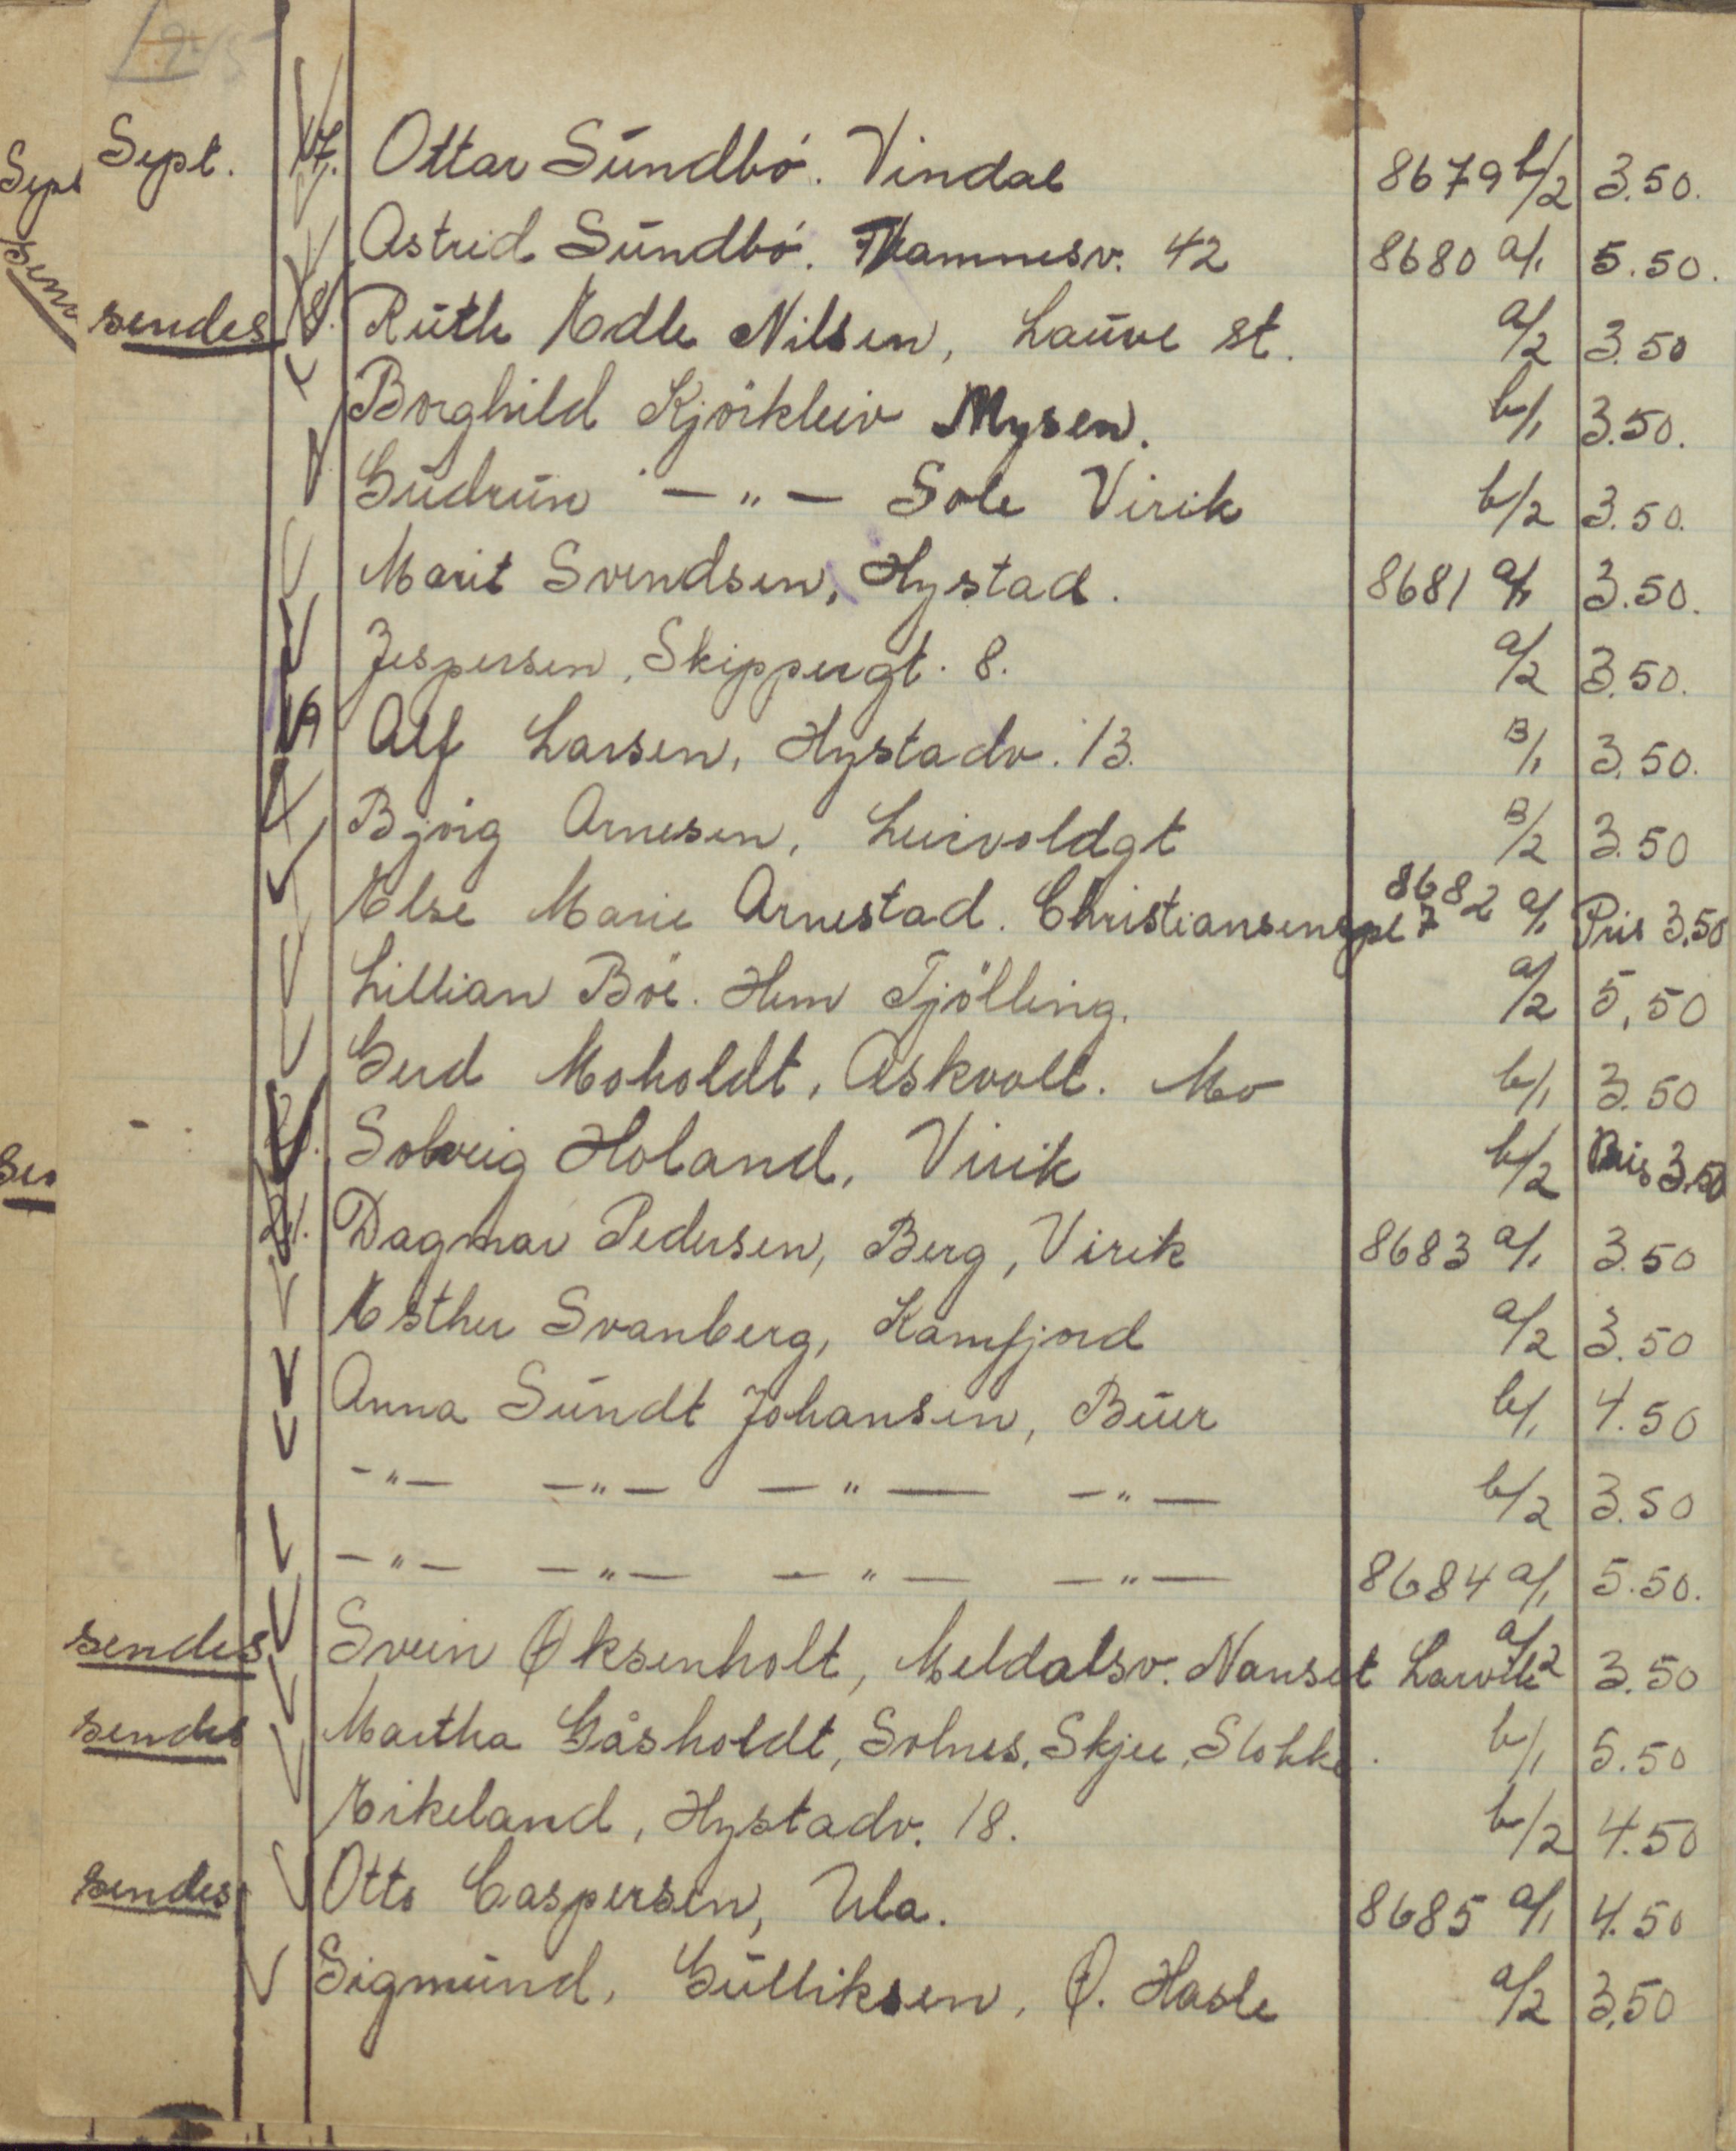 Sept. 17. Ottar Sundbö. Vindal 8679 b/2 3.50.
Astrid Sundbö. Framnesv. 42 8680 a/1 5.50.
sendes 18. Ruth Edle Nilsen, Lauve st. a/2 3.50
Borghild Kjörkleiv Mysen. b/1 3.50.
Gudrun —"— Sole Virik b/2 3.50.
Marit Svendsen, Hystad. 8681 a/1 3.50.
Jespersen, Skippergt. 8. a/2 3.50.
19 Alf Larsen, Hystadv. 13. B/1 3.50.
Björg Arnesen, Leirvoldgt B/2 3.50
Else Marie Arnestad. Christiansenspl 7 8682 a/1 Pris 3.50
Lillian Böe. Hem Tjölling. a/2 5,50
Gerd Moholdt, Askvoll. Mo b/1 3.50
20. Solveig Holand, Virik b/2 Pris 3.50
21. Dagmar Pedersen, Berg, Virik 8683 a/1 3.50
Esther Svanberg, Kamfjord a/2 3.50
Anna Sundt Johansen, Buer b/1 4.50
—"— —"— —"— —"— b/2 3.50
—"— —"— —"— —"— 8684 a/1 5.50.
sendes Svein Øksenholt, Meldalsv. Nanset Larvik a/2 3.50
sendes Martha Gåsholdt, Solnes, Skjee, Stokke. b/1 5.50
Eikeland, Hystadv. 18. b/2 4.50
sendes Otto Caspersen, Ula. 8685 a/1 4.50
Sigmund, Gulliksen, Ø. Hasle a/2 3,50